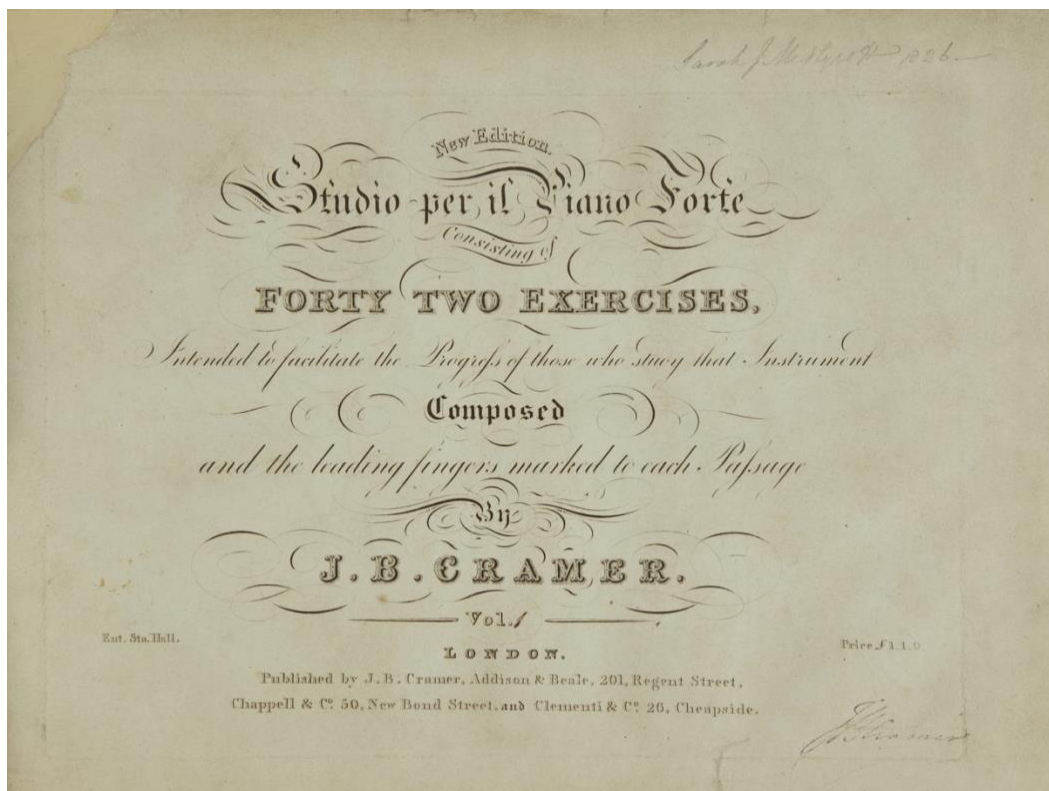 Sarah J
New Edition.
Studio per il Piano Forte
Consisting of
FORTY TWO EXERCISES,
Intended to facilitate the Progreſs of those who study that Instrument
Composed
and the leading fingers marked to each Paſsage
By
J. B. CRAMER.
Vol. 1
Ent. Sta. Hall.
Price £1.1.0
LONDON.
Published by J. B. Cramer, Addison & Beale, 201, Regent Street,
Chappell & Co. 50, New Bond Street, and Clementi & Co. 26, Cheapside.
JB Cramer